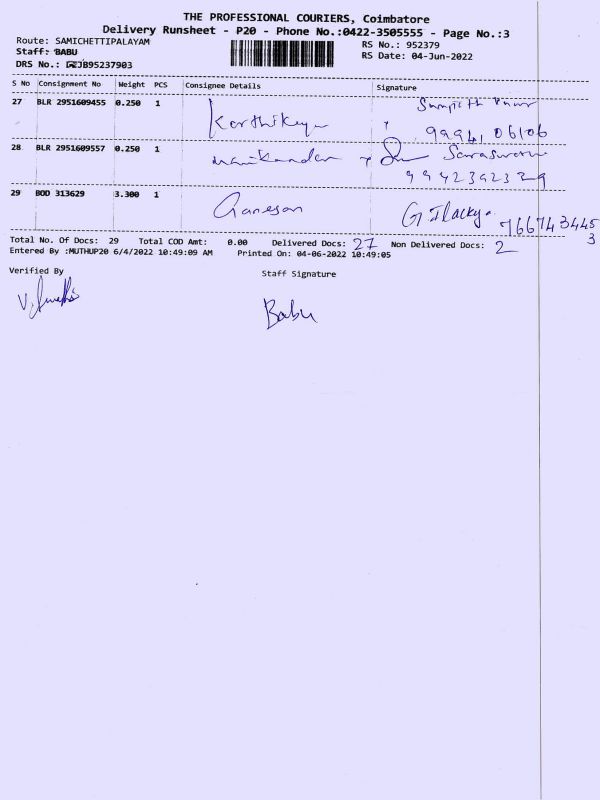 THE PROFESSIONAL COURIERS, Coimbatore
Delivery Runsheet - P20 - Phone No.:0422-3505555 - Page No.:3
Route: SAMICHETTIPALAYAM
RS No.: 952379
Staff: BABU
RS Date: 04-Jun-2022
DRS No.: CJB95237903
S No Consignment No Weight PCS Consignee Details Signature
27 BLR 2951609455 0.250 1 Karthikeyan Sampath Kumar
99941 06106
28 BLR 2951609557 0.250 1 manikandan Saraswathi
9942392329
29 BOD 313629 3.300 1 Ganesan G
7667434453
Total No. Of Docs: 29 Total COD Amt: 0.00 Delivered Docs: 27 Non Delivered Docs: 2
Entered By :MUTHUP20 6/4/2022 10:49:09 AM Printed On: 04-06-2022 10:49:05
Verified By Staff Signature
Babu